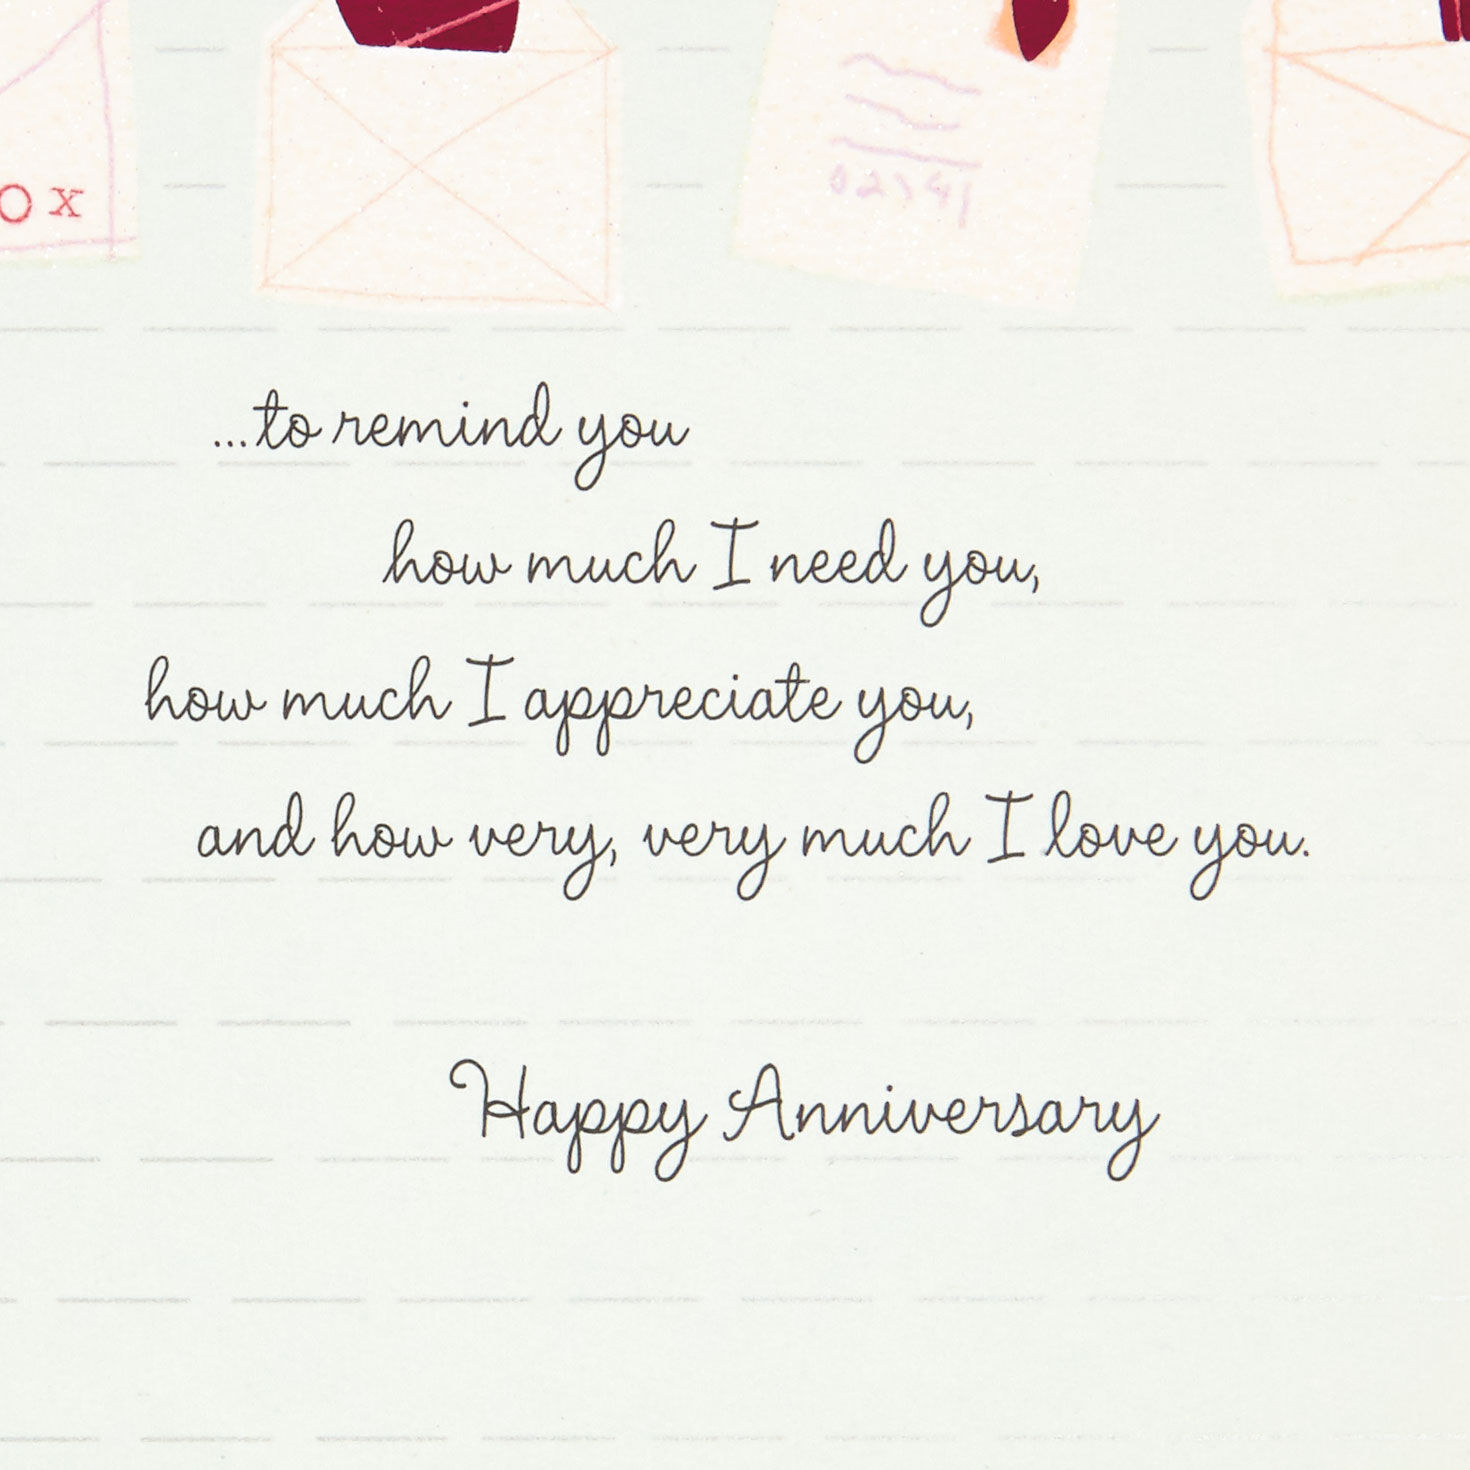 OX
02341
...to remind you
how much I need you,
how much I appreciate you,
and how very, very much I love you.
Happy Anniversary